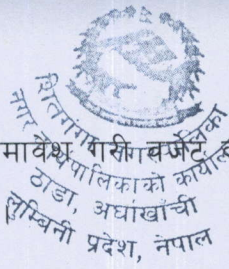 शितगंगा नगरपालिका
नगर कार्यपालिकाको कार्यालय
मावेश गरी बजेट
ठाडा, अर्घाखाँची
लुम्बिनी प्रदेश, नेपाल